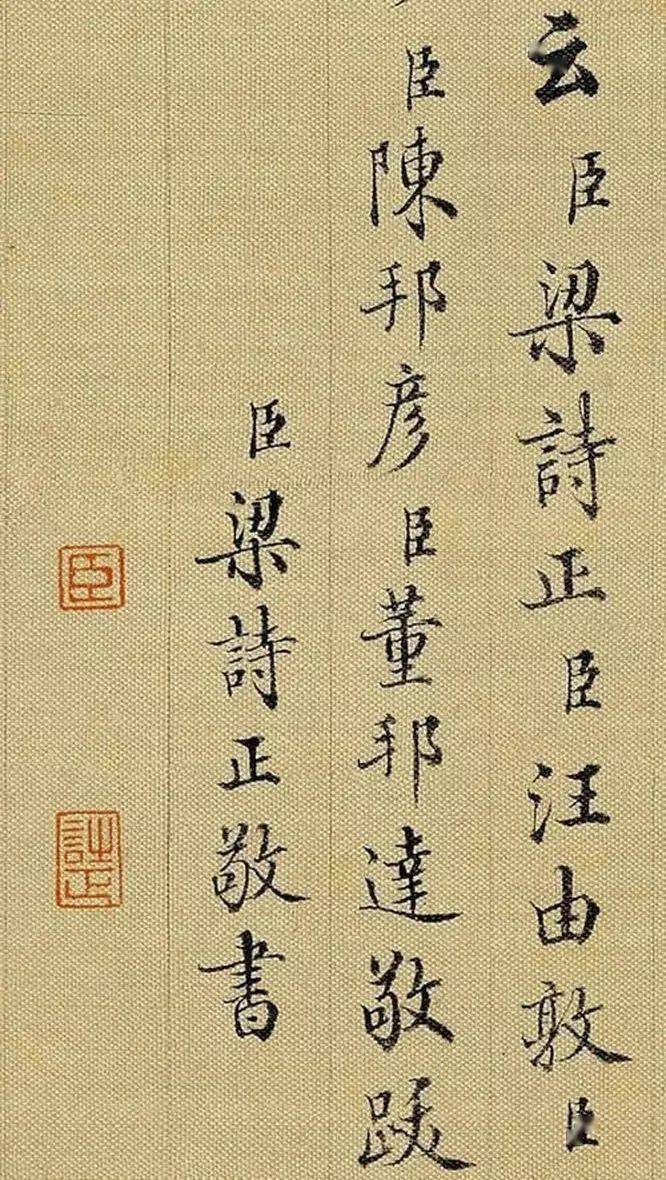 云臣梁詩正臣汪由敦臣
臣陳邦彥臣董邦達敬跋
臣梁詩正敬書
臣
詩正